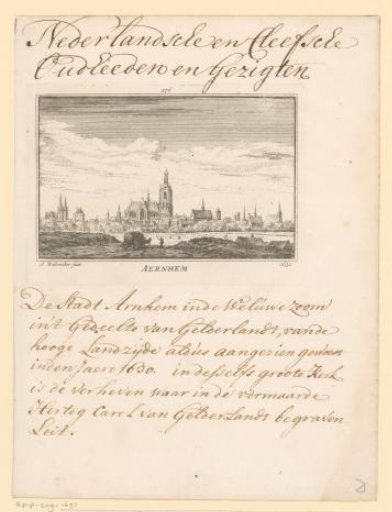 Nederlandsche en Cleefsche
Oudheeden en Gezigten
176
A. Rademaker fecit
1630
AERNHEM
De Stadt Arnhem inde Weluwe zoom
in't Gedeelte van Gelderlandt, van de
hooge Landzijde aldies aangezien geweest
inden Jaere 1630. in desselfs groote Kerk
is de verheven waar in de vermaarde
Hertog Carel van Gelderlandt begraven
Leit.